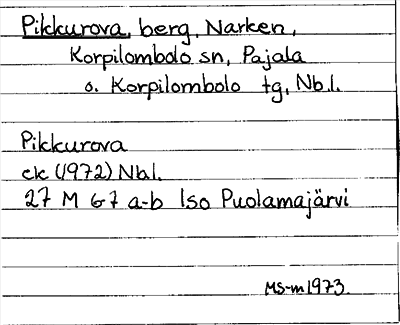 Pikkurova, berg, Narken,
Korpilombolo sn, Pajala
o. Korpilombolo tg, Nb.l.
Pikkurova
ek (1972) Nbl.
27 M 6-7 a-b Iso Puolamajärvi
MS-m 1973.